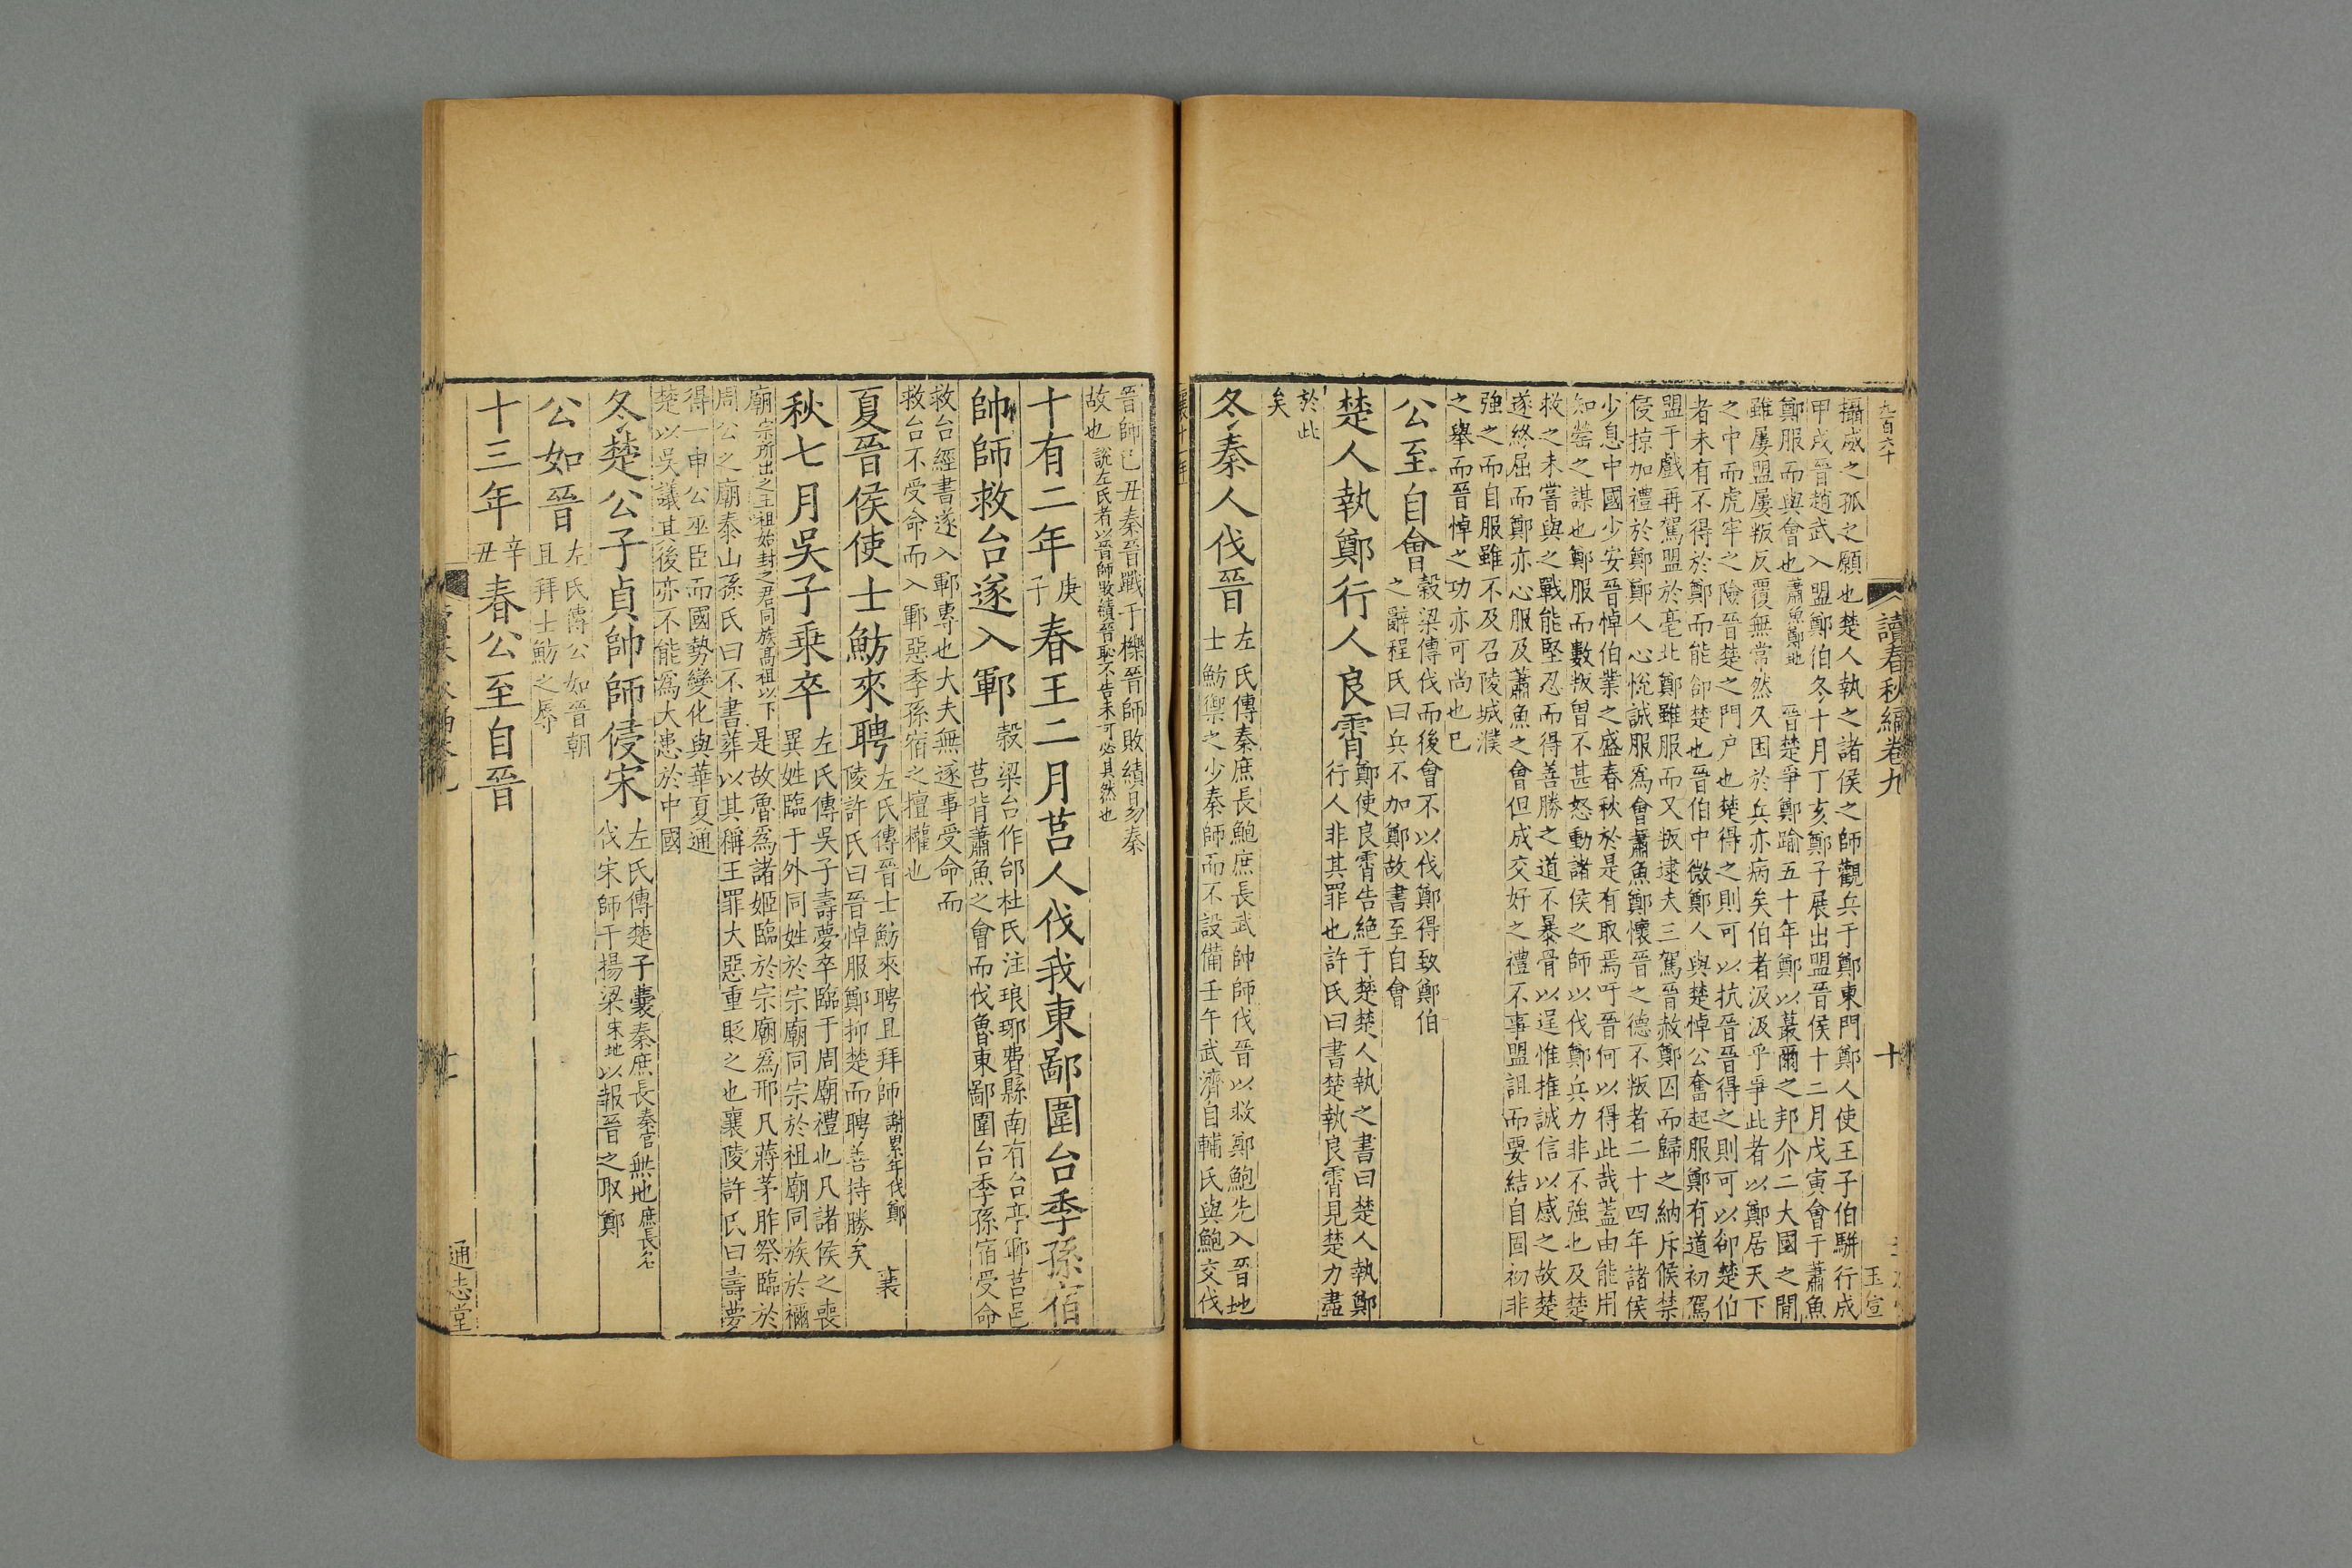 九百六十
讀春秋編卷九
十
玉宣
攝威之孤之願也楚人執之諸侯之師觀兵于鄭東門鄭人使王子伯駢行成
甲戌晉趙武入盟鄭伯冬十月丁亥鄭子展出盟晉侯十二月戊寅會于蕭魚
鄭服而與會也蕭魚鄭地晉楚爭鄭踰五十年鄭以蕞爾之邦介二大國之閒
雖屢盟屢叛反覆無常然久困於兵亦病矣伯者汲汲乎爭此者以鄭居天下
之中而虎牢之險晉楚之門户也楚得之則可以抗晉晉得之則可以卻楚伯
者未有不得於鄭而能卻楚也晉伯中微鄭人與楚悼公奮起服鄭有道初駕
盟于戲再駕盟於亳北鄭雖服而又叛逮夫三駕晉赦鄭囚而歸之納斥候禁
侵掠加禮於鄭鄭人心悅誠服爲會蕭魚鄭懷晉之德不叛者二十四年諸侯
少息中國少安晉悼伯業之盛春秋於是有取焉吁晉何以得此哉蓋由能用
知罃之謀也鄭服而數叛曾不甚怒動諸侯之師以伐鄭兵力非不強也及楚
救之未嘗與之戰能堅忍而得善勝之道不暴骨以逞惟推誠信以感之故楚
遂終屈而鄭亦心服及蕭魚之會但成交好之禮不事盟詛而要結自固初非
強之而自服雖不及召陵城濮
之舉而晉悼之功亦可尚也已
公至自會
穀梁傳伐而後會不以伐鄭得致鄭伯
之辭程氏曰兵不加鄭故書至自會
楚人執鄭行人良霄
鄭使良霄告絶于楚楚人執之書曰楚人執鄭
行人非其罪也許氏曰書楚執良霄見楚力盡
於此
矣
冬秦人伐晉
左氏傳秦庶長鮑庶長武帥師伐晉以救鄭鮑先入晉地
士魴禦之少秦師而不設備壬午武濟自輔氏與鮑交伐
晉師己丑秦晉戰于櫟晉師敗績易秦
故也說左氏者以晉師敗績晉恥不告未可必其然也
十有二年
庚
子
春王二月莒人伐我東鄙圍台季孫宿
帥師救台遂入鄆
穀梁台作邰杜氏注琅邪費縣南有台亭鄆莒邑
莒背蕭魚之會而伐魯東鄙圍台季孫宿受命
救台經書遂入鄆專也大夫無遂事受命而
救台不受命而入鄆惡季孫宿之擅權也
夏晉侯使士魴來聘
左氏傳晉士魴來聘且拜師謝累年伐鄭襄
陵許氏曰晉悼服鄭抑楚而聘善持勝矣
秋七月吳子乘卒
左氏傳吳子壽夢卒臨于周廟禮也凡諸侯之喪
異姓臨于外同姓於宗廟同宗於祖廟同族於禰
廟宗所出之王祖始封之君同族高祖以下是故魯爲諸姬臨於宗廟爲邢凡蔣茅胙祭臨於
周公之廟泰山孫氏曰不書葬以其稱王罪大惡重貶之也襄陵許氏曰壽夢
得一申公巫臣而國勢變化與華夏通
楚以吳議其後亦不能爲大患於中國
冬楚公子貞帥師侵宋
左氏傳楚子囊秦庶長秦官無地庶長名
伐宋師于揚梁宋地以報晉之取鄭
公如晉
左氏傳公如晉朝
且拜士魴之辱
十三年
辛
丑
春公至自晉
通志堂